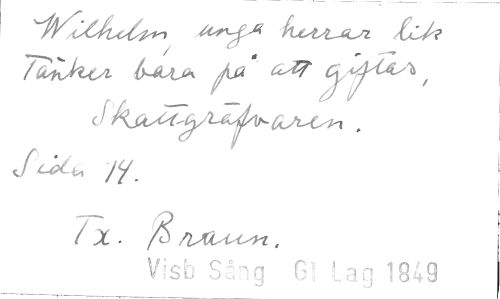 Wilhelm, unga herrar lik
Tänker bara på att giftas,
Skattgräfvaren.
Sida 14.
Tx. Braun.
Visb Sång Gl Lag 1849